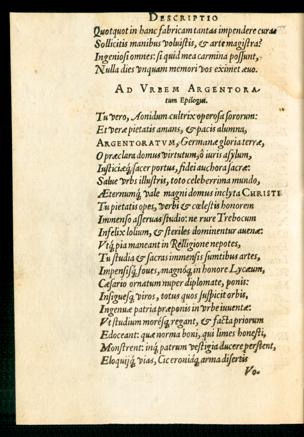 DESCRIPTIO
Quotquot in hanc fabricam tantas impendere curas
Sollicitis manibus voluistis, & arte magistra?
Ingeniosi omnes: si quid mea carmina possunt,
Nulla dies unquam memori vos eximet æuo.
AD VRBEM ARGENTORA-
tum Epilogus.
Tu vero, Aonidum cultrix operosa sororum:
Et veræ pietatis amans, & pacis alumna,
ARGENTORATVM, Germanæ gloria terræ,
O præclara domus virtutum, ô iuris asylum,
Iusticiæq́; sacer portus, fidei auchora sacræ:
Salue vrbs illustris, toto celeberrima mundo,
Æternumq́; vale magni domus inclyta CHRISTI
Tu pietatis opes, verbi & cœlestis honorem
Immenso asseruas studio: ne rure Trebocum
Infelix lolium, & steriles dominentur auenæ:
Vtq́; pia maneant in Relligione nepotes,
Tu studia & sacras immensis sumtibus artes,
Impensisq́; foues, magnóq; in honore Lycæum,
Cæsario ornatum nuper diplomate, ponis:
Insignesq́; viros, totus quos suspicit orbis,
Ingenuæ patria præponis in vrbe iuuentæ:
Vt studium morésq; regant, & facta priorum
Edoceant: quæ norma boni, qui limes honesti,
Monstrent: inq́; patrum vestigia ducere pergant,
Eloquijq́; vias, Ciceroniáq; arma disertis
Vo-